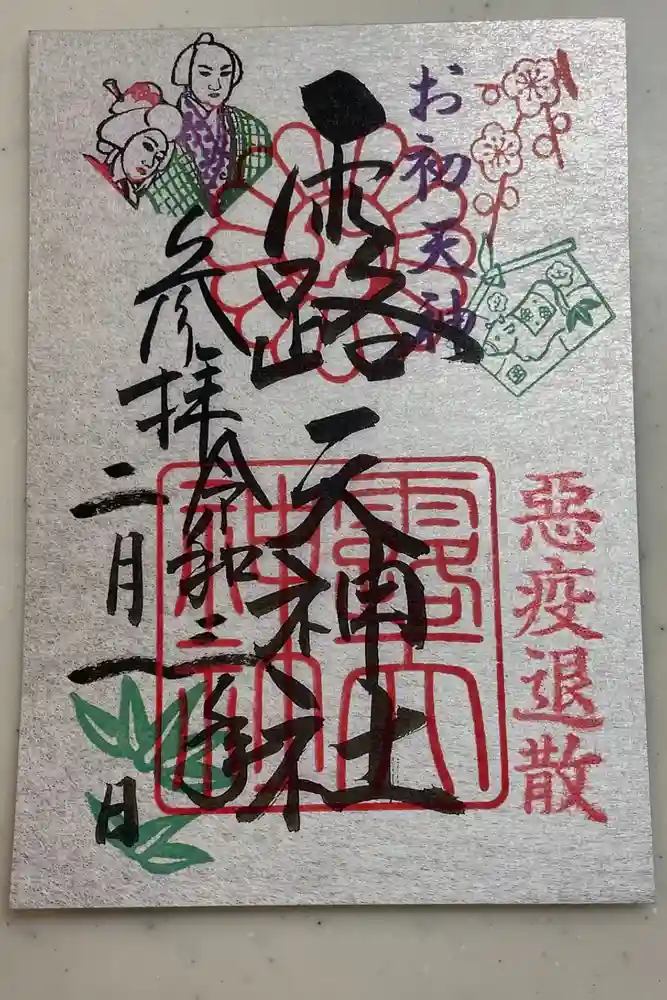 悪疫退散
お初天神
露天神社
参拝令和三年
二月一日